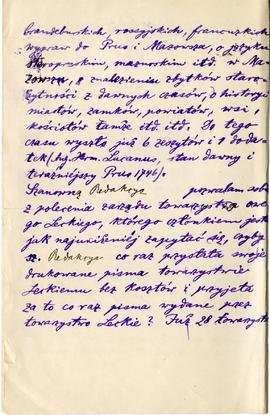 brandeburskich, rossyjskich, francuzkich
wypraw do Prus i Mazowsza, o języku
staropruskim, mazurskim itd. w Ma-
zowszu, o znalezieniu zbytków staro-
żytności z dawnych czasów, o historyi
miastów, zamków, powiatów, wsi,
kościołów tamże itd. itd. Do tego
czasu wyszło już 6 zeszytów i 1 doda-
tek (Aug. Herm. Lucanus, stan dawny i
teraźniejszy Prus 1746).
Szanowną Redakcyą pozwalam sobie
z polecenia zarządu towarzystwa
Leckiego, którego członkiem jest
jak najuniżeniej zapytać się, czyby
sz. Redakcya co raz przysłała swoje
drukowane pisma towarzystwie
Leckiemu bez kosztów i przyjęła
za to co raz pisma wydane przez
towarzystwo Leckie? Już 28 towarzystw